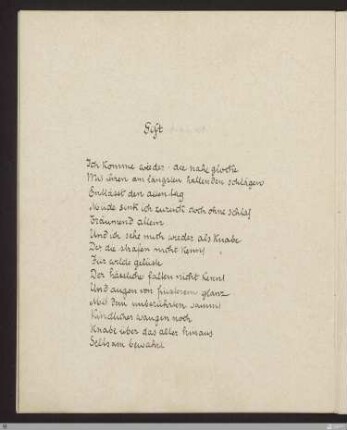 Gift
Ich komme wieder. die nahe glocke
Mit ihren am längsten hallenden schlägen
Entlässt den alten tag
Müde sink ich zurück doch ohne schlaf
Träumend allein
Und ich sehe mich wieder als knabe
Der die strafen nicht kennt
Für wilde gelüste
Der hässliche falten nicht kennt
Und augen von finsterem glanz
Mit dem unberührten samme
Kindlicher wangen noch
Knabe über das alter hinaus
Seltsam bewahrt